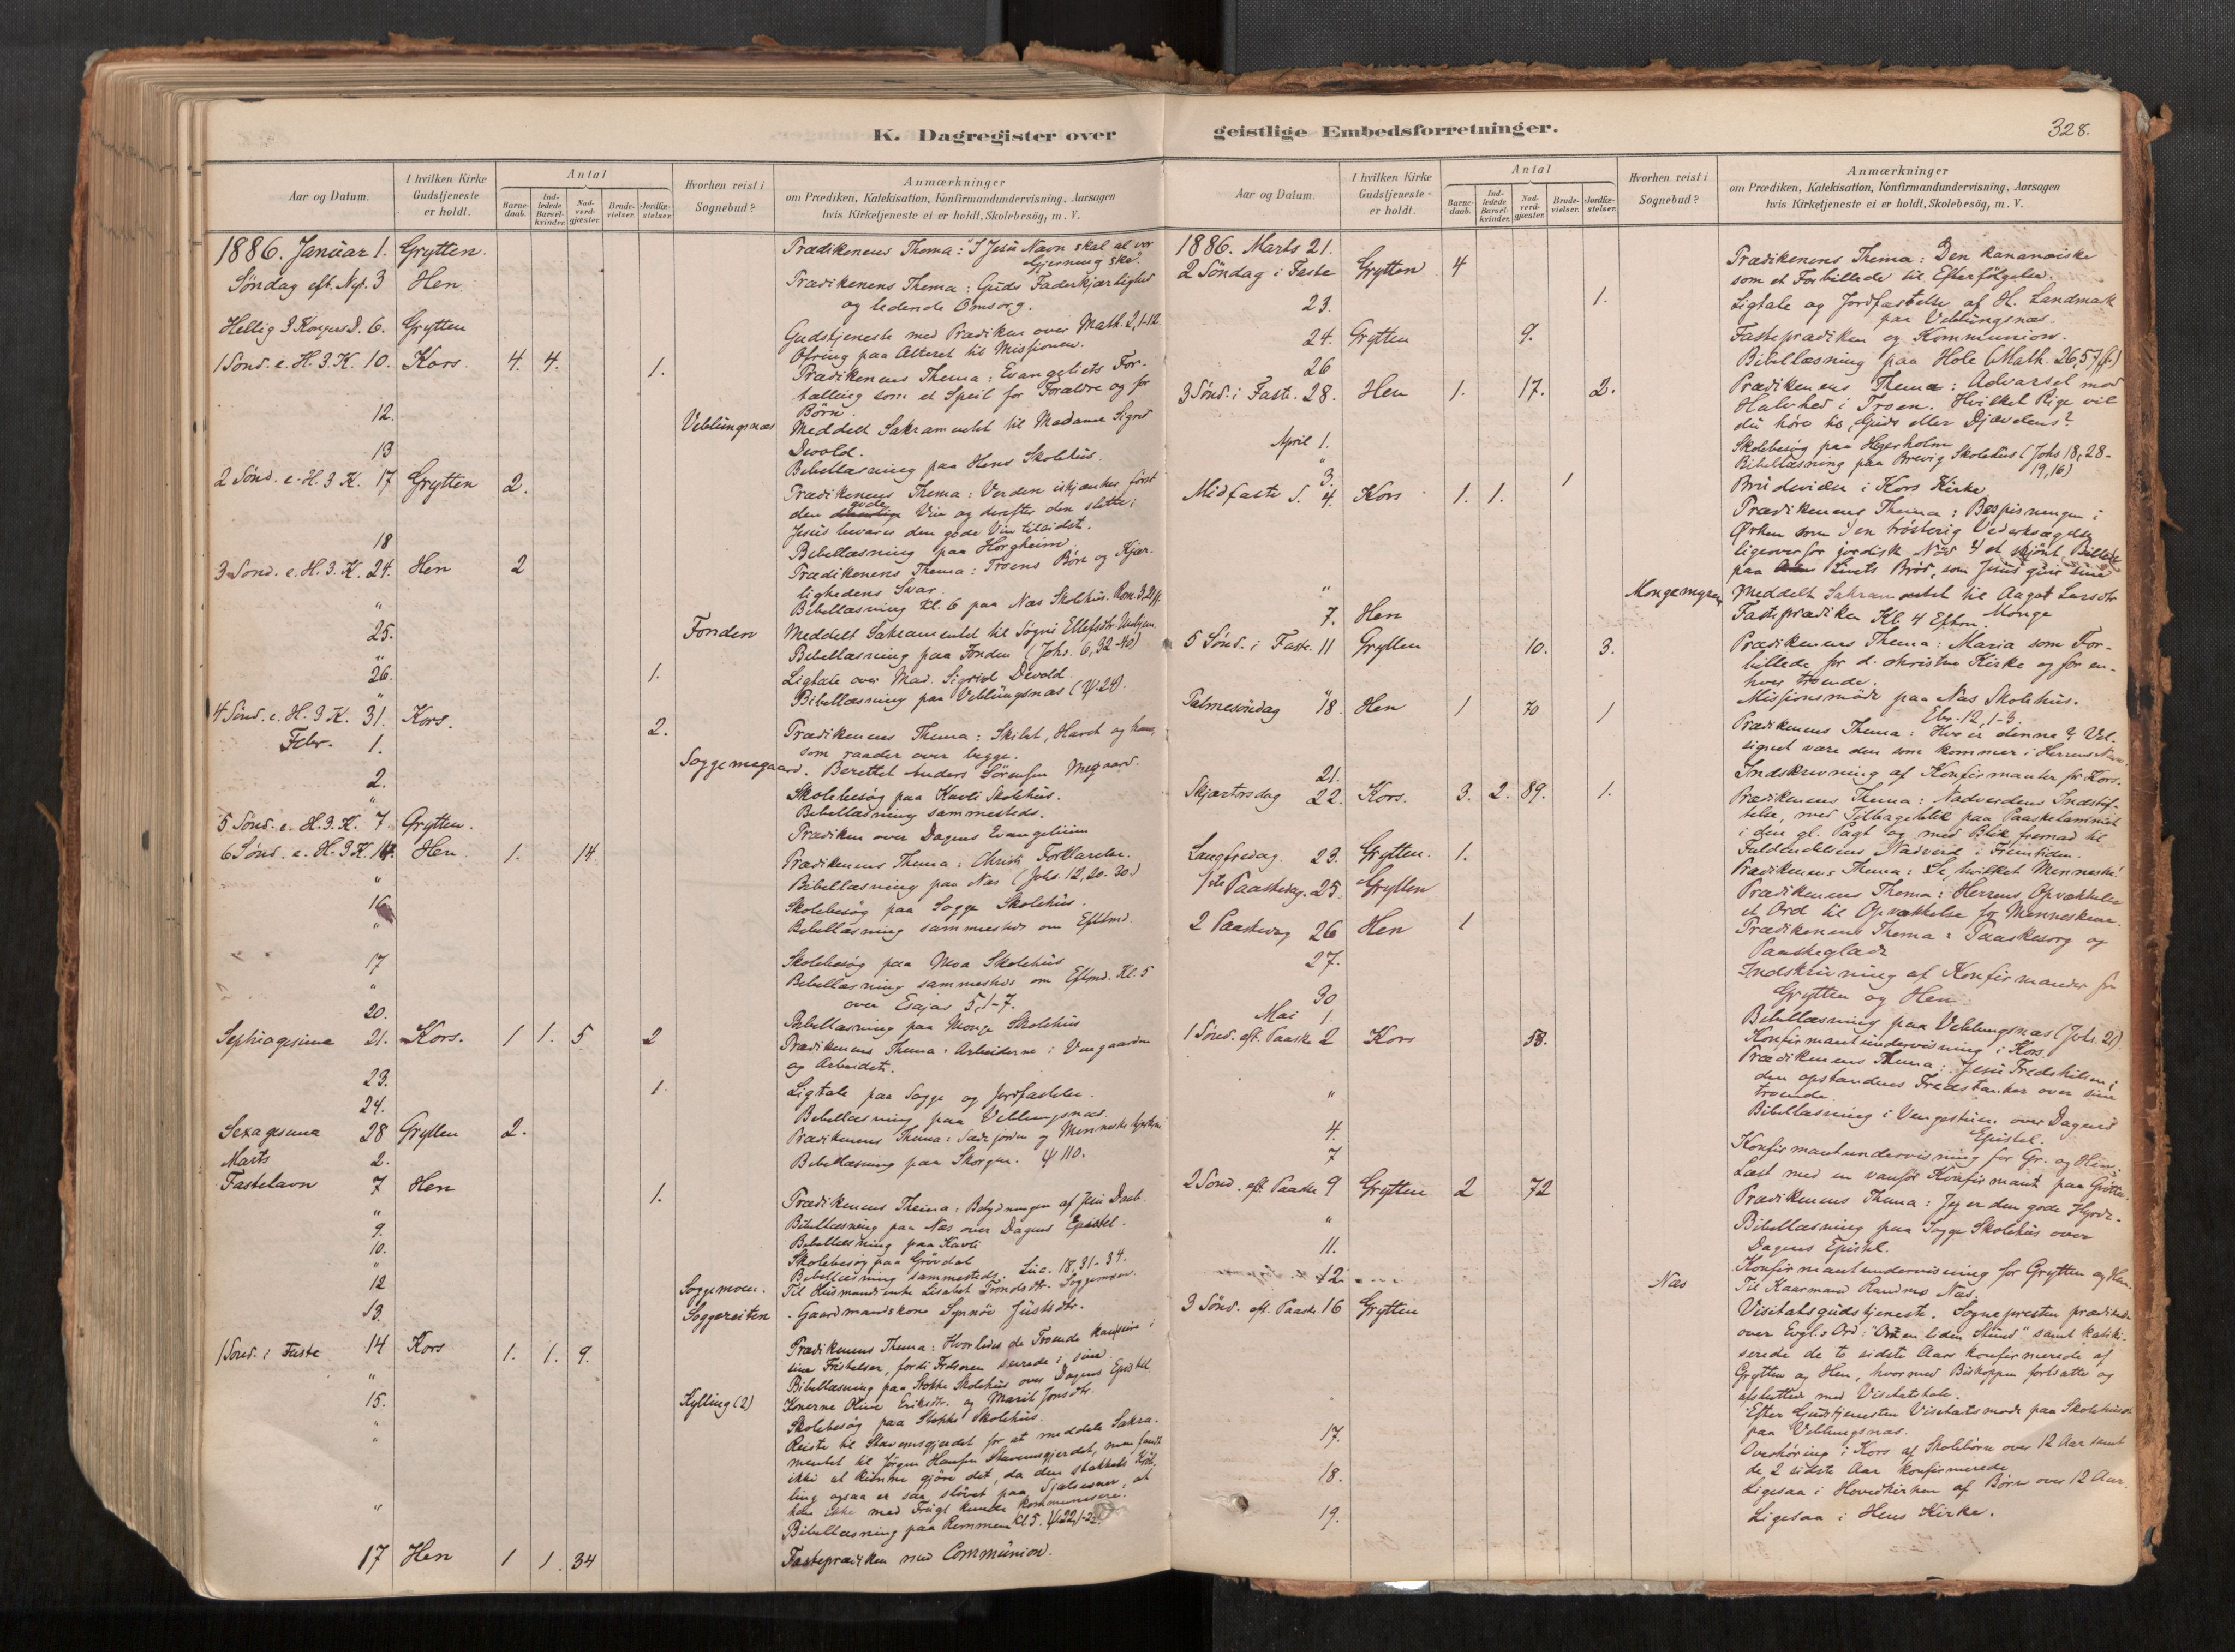 K. Dagregister over
Aar og Datum.
I hvilken Kirke Gudstjeneste er holdt.
Antal
Barnedaab.
Indledede Barselkvinder.
Nadverdgjester.
Brudevielser.
Jordfæstelser.
Hvorhen reist i Sognebud?
Anmærkninger
om Prædiken, Katekisation, Konfirmandundervisning, Aarsagen
hvis Kirketjeneste ei er holdt, Skolebesøg, m. V.
1886. Januar 1. Grytten. Prædikenens Thema: "I Jesu Navn skal al vor
Gjerning ske".
Søndag eft. Nyt. 3 Hen Prædikenens Thema: Guds Faderkjærlighed
og ledende Omsorg.
Hellig 3 Kongers D. 6. Grytten Gudstjeneste med Prædiken over Math. 2, 1-12.
Ofring paa Alteret til Missionen.
1 Sønd. e. H. 3. K. 10. Kors. 4. 4. 1. Prædikenens Thema: Evangeliets For-
tælling som et Speil for Forældre og for
Børn.
12. Veblungsnæs Meddelt Sakramentet til Madame Sigrid
Devold.
13 Bibellæsning paa Hens Skolehus.
2 Sønd. e. H. 3 K. 17 Grytten 2. Prædikenens Thema: Verden iskjænker først
den gode Vin og derefter den slette;
Jesus bevarer den gode Vin til sidst.
18 Bibellæsning paa Horgheim.
3 Sønd. e. H. 3. K. 24. Hen 2 Prædikenens Thema: Troens Bøn og Kjær-
lighedens Svar.
" Bibellæsning Kl. 6 paa Næs Skolehus. Rom. 3, 21 ff.
25. Fonden Meddelt Sakramentet til Søgni Ellefsdtr.
" Bibellæsning paa Fonden (Johs. 6, 32-40)
26. 1. Ligtale over Mad. Sigrid Devold.
" Bibellæsning paa Veblungsnæs (ψ. 24).
4 Sønd. e. H. 3 K. 31. Kors. 2. Prædikenens Thema: Skibet, Havet og ham,
som raader over begge.
Febr. 1. Soggemogaard. Berettet Anders Sørensen Mogaard.
2. Skolebesøg paa Kavli Skolehus.
" Bibellæsning sammesteds.
5 Sønd. e. H. 3. K. 7 Grytten. Prædiken over Dagens Evangelium
6 Sønd. e. H. 3 K. 14. Hen 1. 14. Prædikenens Thema: Christi Forklarelse.
" Bibellæsning paa Næs (Johs. 12, 20-30)
16 Skolebesøg paa Sogge Skolehus.
" Bibellæsning sammesteds om Eftmd.
17 Skolebesøg paa Moa Skolehus
" Bibellæsning sammesteds om Eftmd. Kl. 5
over Esajas 5, 1-7.
20. Bibellæsning paa Monge Skolehus
Septuagesima 21. Kors. 1 1. 5 2 Prædikenens Thema: Arbeiderne i Vingaarden
og Arbeidet.
23. 1. Ligtale paa Sogge og Jordfæstelse.
24. Bibellæsning paa Veblungsnæs.
Sexagesima 28 Grytten 2. Prædikenens Thema: Sædejorden og Menneskehjertet
Marts 2. Bibellæsning paa Skorgen. ψ 110.
Fastelavn 7 Hen 1. Prædikenens Thema: Betydningen af Jesu Daab.
" Bibellæsning paa Næs over Dagens Epistel.
9. Bibellæsning paa Kavli
10. Skolebesøg paa Grøvdal
" Bibellæsning sammesteds. Luc. 18, 31-34.
12 Soggemoen. Til Husmandsenke Lisabet Trondsdtr. Soggemoen.
13. Soggereiten - Gaardmandskone Synnøv Justsdtr.
1 Sønd. i Faste 14 Kors 1. 1. 9. Prædikenens Thema: Hvorledes de Troende kan seire i
sine Fristelser, fordi Frelseren seirede i sine
" Bibellæsning paa Stokke Skolehus over Dagens Epistel
15. Kylling (2) Konerne Oline Eriksdtr. og Marit Jonsdtr.
" Skolebesøg paa Stokke Skolehus.
" Reiste til Stavemsgjerdet for at meddele Sakra-
mentet til Jørgen Hansen Stavemsgjerdet, men fandt
ikke at kunne gjøre det, da den stakkels Krøb-
ling ogsaa er saa sløvet paa Sjælsevner, at
han ikke med Frugt kunde kommunicere.
" Bibellæsning paa Remmem Kl 5. ψ 22, 1-22.
17 Hen 1 1. 34 Fasteprædiken med Communion.
geistlige Embedsforretninger.
328.
Aar og Datum.
I hvilken Kirke Gudstjeneste er holdt.
Antal
Barnedaab.
Indledede Barselkvinder.
Nadverdgjester.
Brudevielser.
Jordfæstelser.
Hvorhen reist i Sognebud?
Anmærkninger
om Prædiken, Katekisation, Konfirmandundervisning, Aarsagen
hvis Kirketjeneste ei er holdt, Skolebesøg, m. V.
1886. Marts 21.
2 Søndag i Faste Grytten 4 Prædikenens Thema: Den kananæiske
som et Forbillede til Efterfølgelse.
23. 1. Ligtale og Jordfæstelse af H. Landmark
paa Veblungsnæs.
24. Grytten 9. Fasteprædiken og Kommunion.
26 Bibellæsning paa Hole (Math. 26, 57 ff.)
3 Sønd. i Faste. 28. Hen 1. 17. 2. Prædikenens Thema: Advarsel mod
Halvhed i Troen. Hvilket Rige vil
du høre til, Guds eller Djævelens?
April 1. Skolebesøg paa Hegerholm
" Bibellæsning paa Brevig Skolehus (Johs 18, 28-
19, 16)
3. 1 Brudevielse i Kors Kirke
Midfaste S. 4. Kors 1. 1. Prædikenens Thema: Bespisningen i
Ørken som 1) en trøsterig Vederkvægelse
ligeoverfor jordisk Nød 2) et skjønt Billede
paa Livets Brød, som Jesus giver sine
" Mongemyren Meddelt Sakramentet til Aagot Larsdtr
Monge
7. Hen Fasteprædiken Kl. 4 Eftm.
5 Sønd. i Faste. 11 Grytten 10. 3. Prædikenens Thema: Maria som For-
billede for d. christne Kirke og for en-
hver troende.
" Missionsmøde paa Næs Skolehus.
Ebr. 12, 1-3.
Palmesøndag 18. Hen 1 70 1 Prædikenens Thema: Hvo er denne? Vel-
signet være den som kommer i Herrens Navn.
21. Indskrivning af Konfirmanter for Kors.
Skjærtorsdag 22. Kors. 3. 2. 89. 1. Prædikenens Thema: Nadverdens Indstif-
telse, med Tilbageblik paa Paaskelammet
i den gl. Pagt og med Blik fremad til
Fuldendelsens Nadverd i Fremtiden.
Langfredag. 23. Grytten. 1. Prædikenens Thema: Se, hvilket Menneske!
1ste Paaskedag. 25 Grytten Prædikenens Thema: Herrens Opvækkelse
et Ord til Opvækkelse for Menneskene.
2 Paaskedag 26 Hen 1 Prædikenens Thema: Paaskesorg og
Paaskeglæde
27. Indskrivning af Konfirmander for
Grytten og Hen
30 Bibellæsning paa Veblungsnæs (Johs. 21).
Mai 1. Konfirmantundervisning i Kors.
1 Sønd. eft. Paaske 2 Kors 58. Prædikenens Thema: Jesu Fredshilsen;
den opstandnes Fredstanker over sine
troende.
" Bibellæsning i Vengestuen over Dagens
Epistel.
4. Konfirmantundervisning for Gr. og Hen.
7 Læst med en vanfør Konfirmant paa
2 Sønd. eft. Paaske 9 Grytten 2 72 Prædikenens Thema: Jeg er den gode Hyrde.
" Bibellæsning paa Sogge Skolehus over
Dagens Epistel.
11. Konfirmantundervisning for Grytten og Hen.
12. Næs Til Kaarmand Rasmus Næs.
3 Sønd. eft. Paaske 16 Grytten Visitatsgudstjeneste. Sognepresten prædikede
over Evgl.s Ord: "Om en liden Stund" samt kateki-
serede de to sidste Aars konfirmerede af
Grytten og Hen, hvormed Biskoppen fortsatte og
afsluttede med Visitatstale.
Efter Gudstjenesten Visitatsmøde paa Skolehuset
paa Veblungsnæs.
17. Overhøring i Kors af Skolebørn over 12 Aar samt
de 2 sidste Aar konfirmerede
18. Ligesaa i Hovedkirken af Børn over 12 Aar.
19. Ligesaa i Hens Kirke.